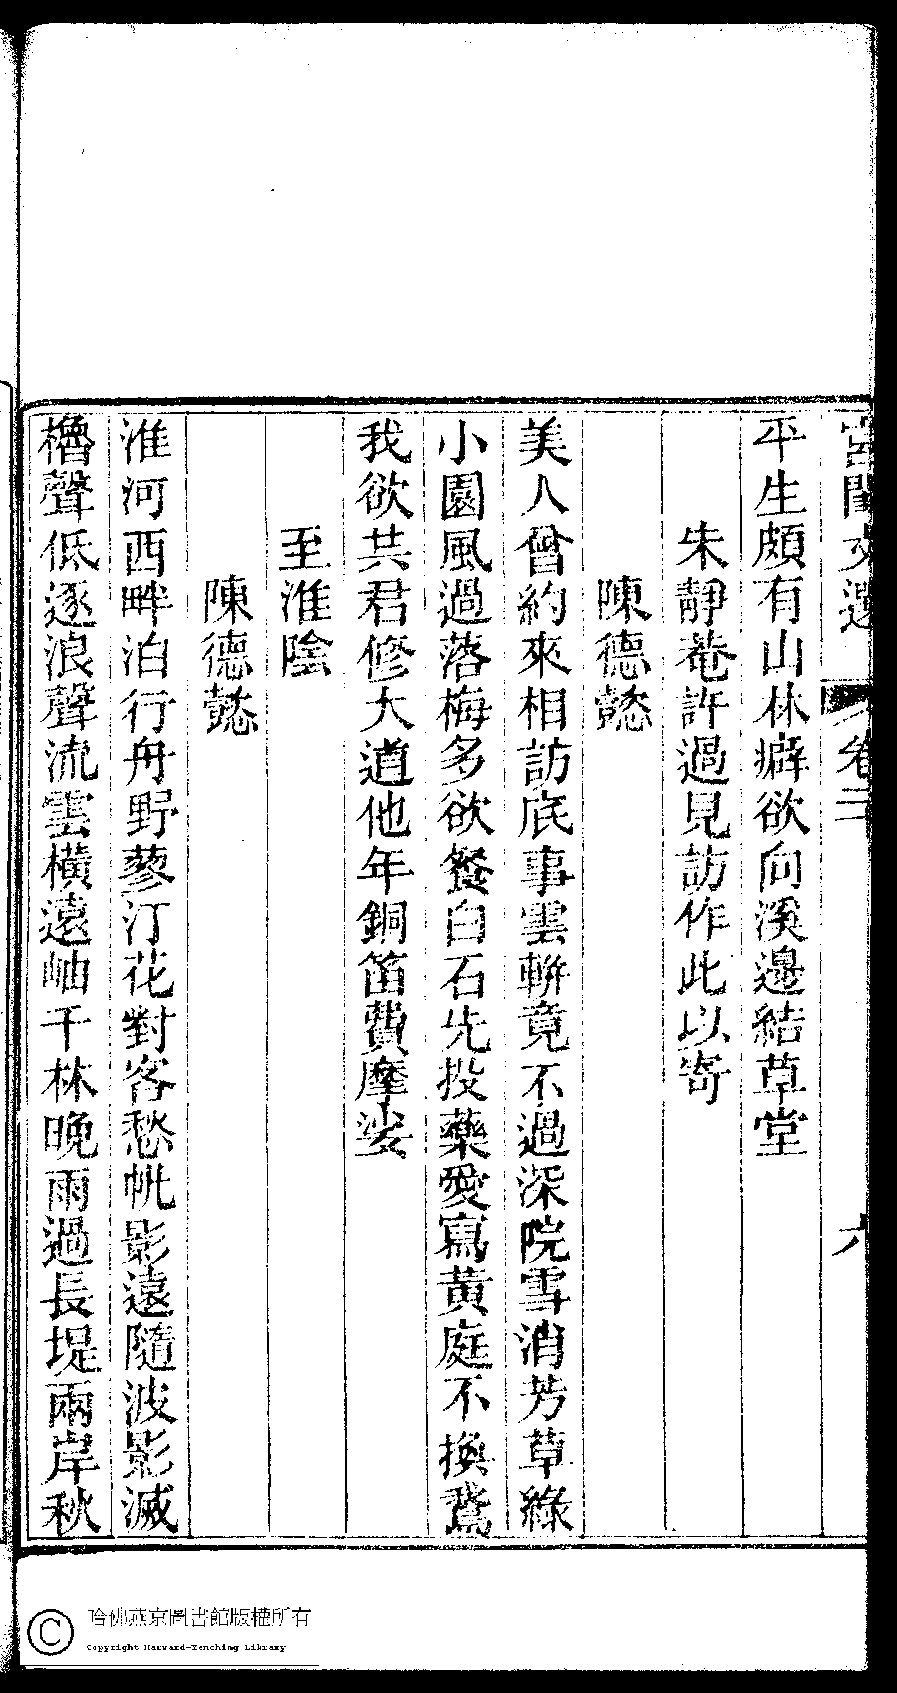 宮閨文選 卷二 六
平生頗有山林癖欲向溪邊結草堂
朱靜菴許過見訪作此以寄
陳德懿
美人曾約來相訪底事雲輧竟不過深院雪消芳草綠
小園風過落梅多欲餐白石先投藥愛寫黃庭不換鵞
我欲共君修大道他年銅笛費摩挲
至淮陰
陳德懿
淮河西畔泊行舟野蓼汀花對客愁帆影遠隨波影滅
櫓聲低逐浪聲流雲橫遠岫千林晚雨過長堤兩岸秋
哈佛燕京圖書館版權所有
Copyright Harvard-Yenching Library